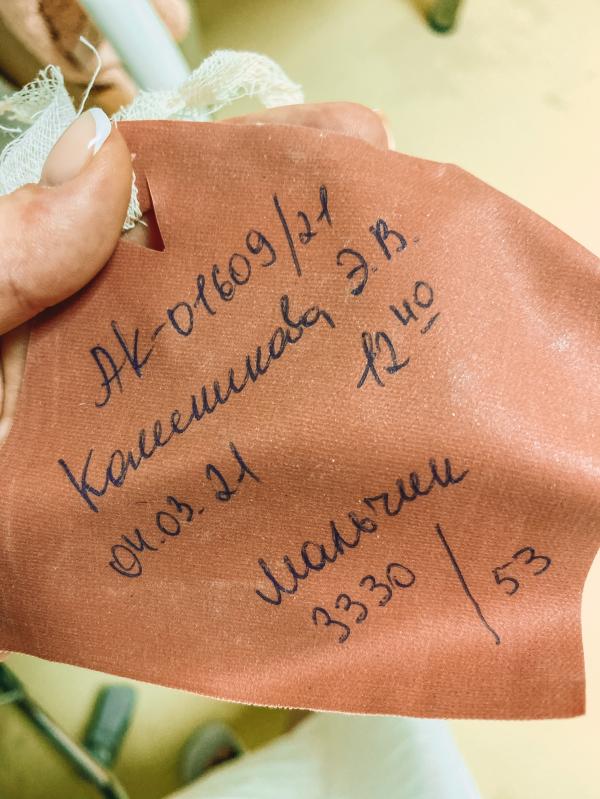 АК-01609/21
Камешникова Э.В.
04.03.21 12 40
мальчик
3330/53